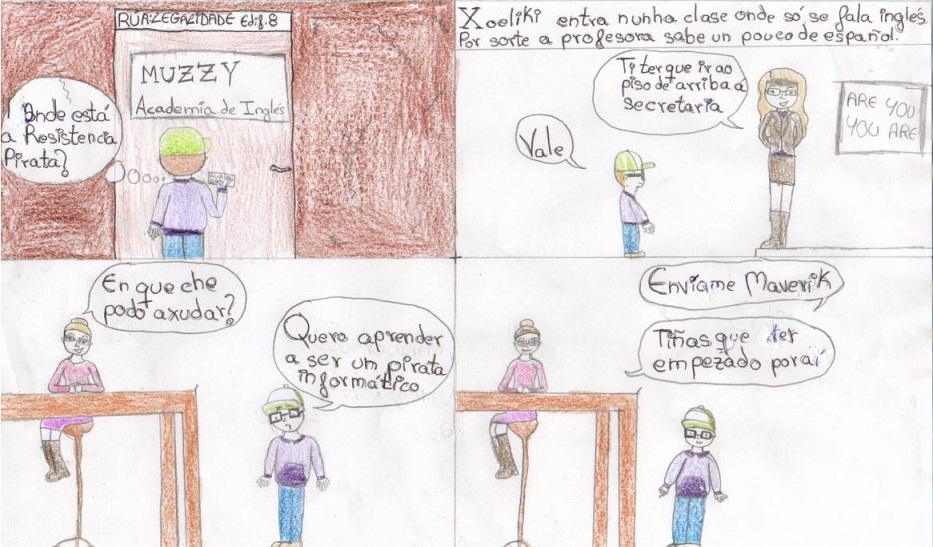 RÚA:LEGALIDADE Edif.8
MUZZY
Academia de Inglés
Onde está
a Resistencia
Pirata?
Xooliki entra nunha clase onde só se fala inglés.
Por sorte a profesora sabe un pouco de español.
Ti ter que ir ao
piso de arriba á
secretaria
Vale
ARE YOU
YOU ARE
En que che
podo axudar?
Quero aprender
a ser un pirata
informático
Envíame Maverik
Tiñas que ter
empezado por aí